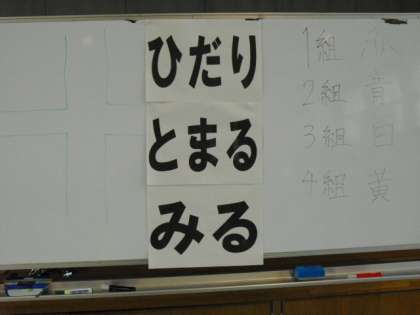 ひだり
とまる
みる
1組 赤
2組 青
3組 白
4組 黄